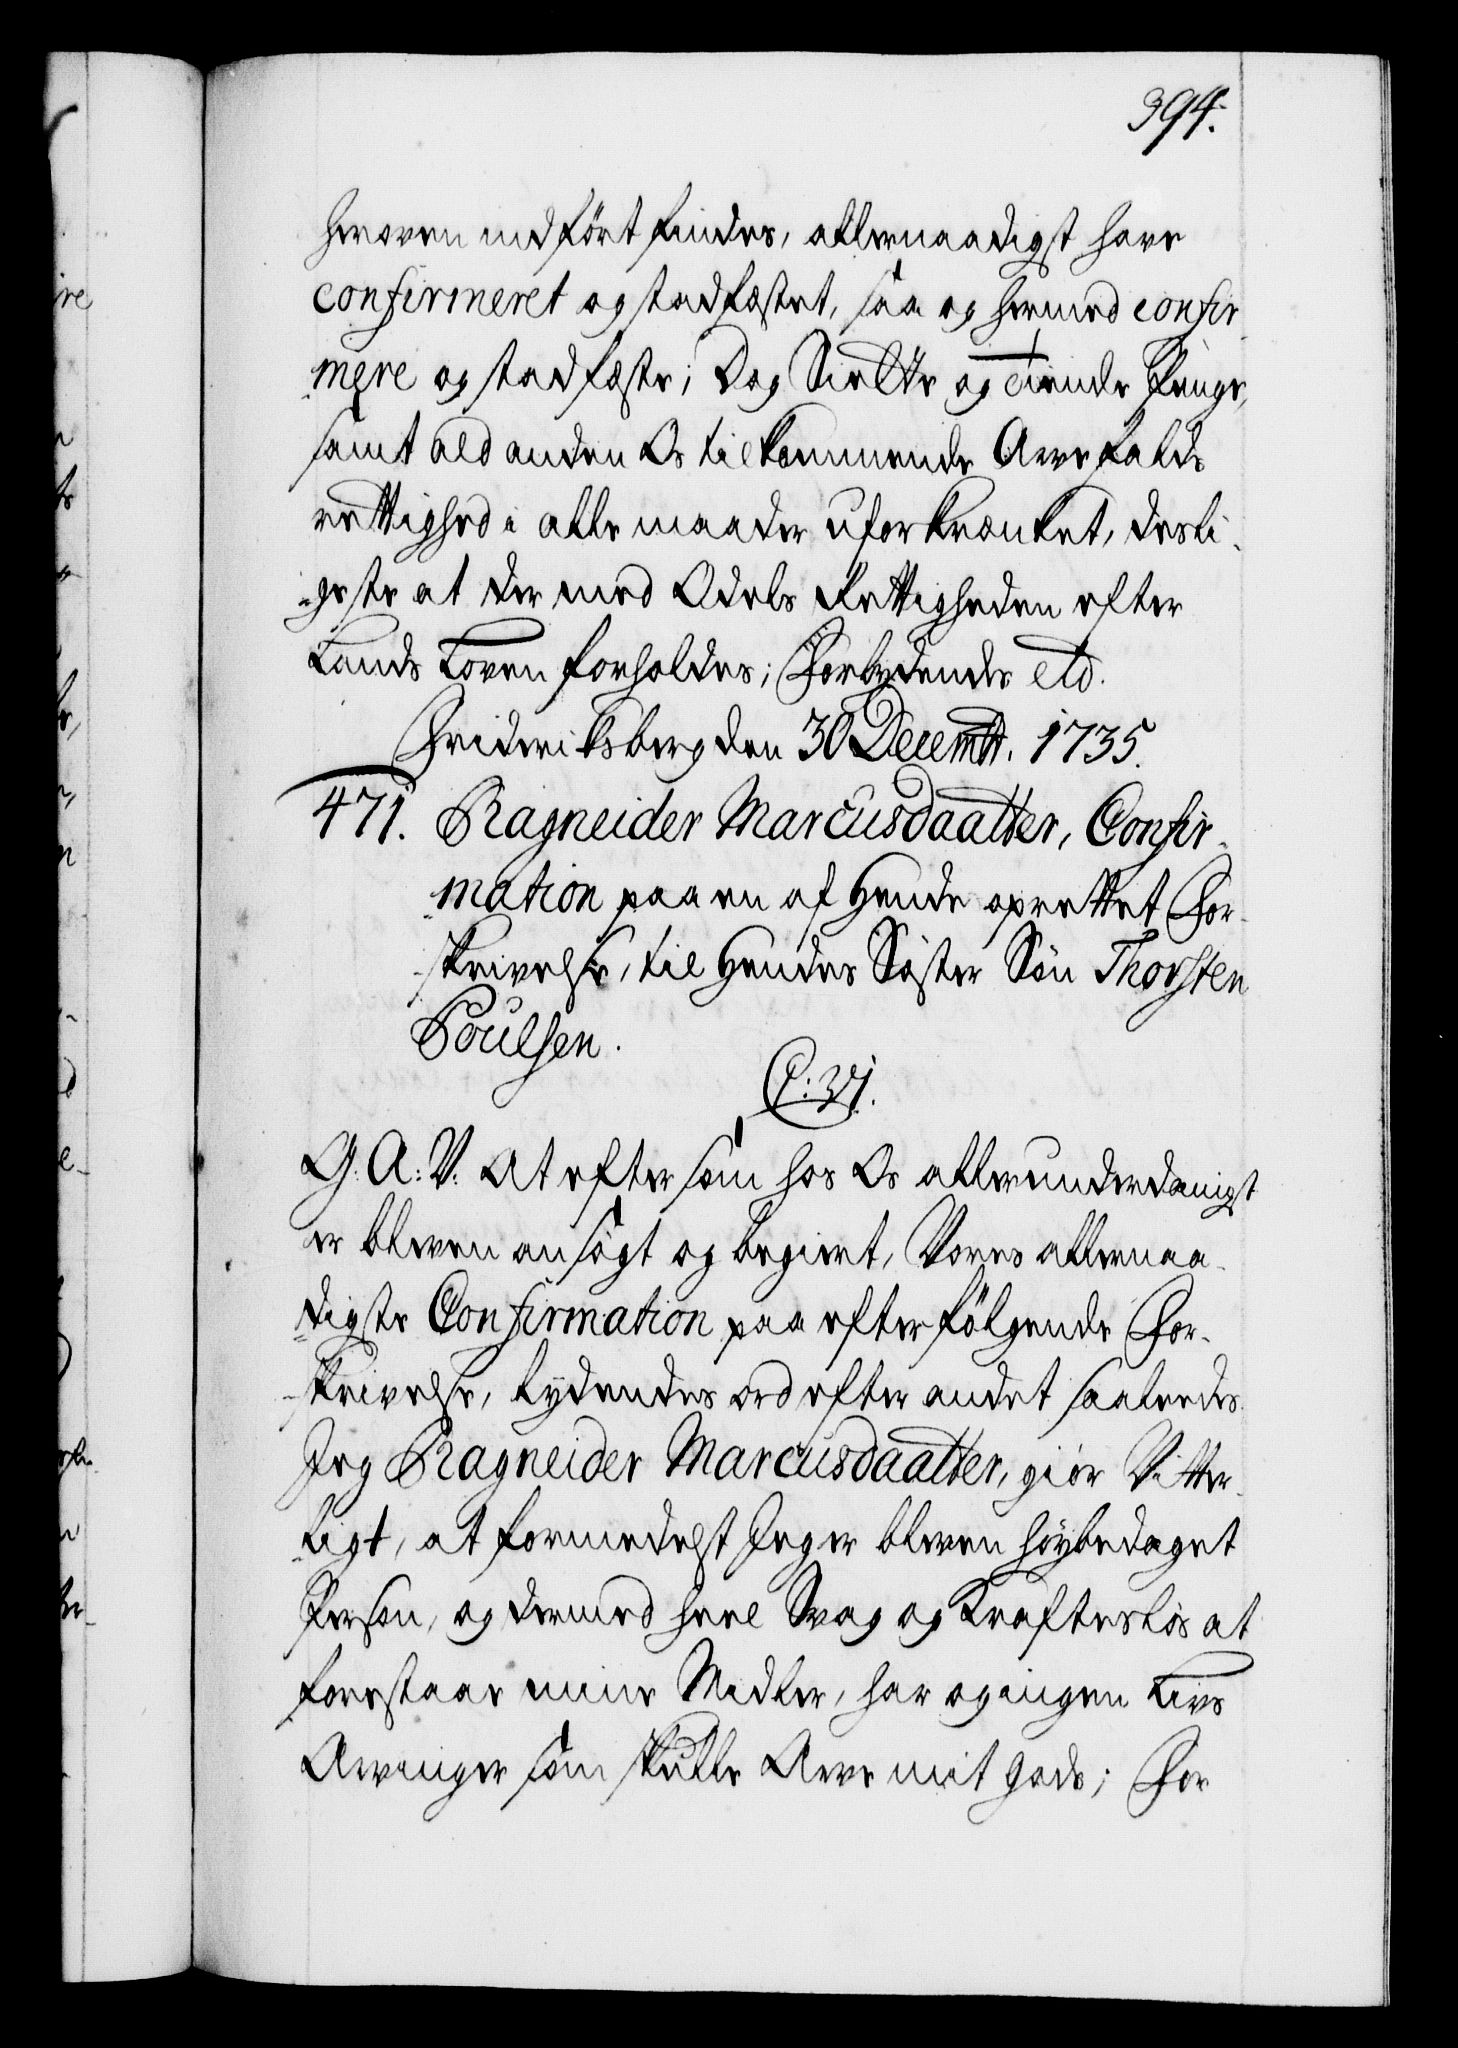 394.
heroven indført findes, allernaadigst have
confirmeret og stadfæstet, saa og hermed confir-
mere og stadfæste; Dog Siette og tiende Penge,
samt ald anden Os tilkommende Arvefalds
rettighed i alle maader uforkrænket, desli-
geste at der med Odels Rettigheden efter
Lands Loven forholdes; Forbydendes etc.
Frideriksberg den 30 Decembr. 1735.
471. Ragneider Marcusdaatter, Confir-
mation paa en af Hende oprettet For-
skrivelse, til Hendes Søster Søn Thorsten
Poulsen.
G. A: V. At eftersom hos Os allerunderdanigst
er bleven ansøgt og begiert, Vores allernaa-
digste Confirmation paa efterfølgende For-
skrivelse, lydendes ord efter andet saaledes.
Jeg Ragneider Marcusdaatter, giør Vitter-
ligt, at formedelst Jeg er bleven høybedaget
Person, og dermed heel Svag og Kraftesløs at
forestaae mine Midler, har og ingen Livs
Arvinger som skulle Arve mit gods; For